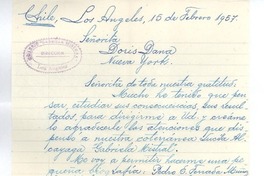 Chile, Los Angeles, 15 de Febrero 1957.
Señorita
Doris Dana
Nueva York.
Señorita de toda nuestra gratitud:
Mucho he tenido que pen-
sar, estudiar sus consecuencias, sus resul-
tados, para dirigirme a Ud. y creame
lo agradecerle las atenciones que dis-
penso a nuestra coterranea Lucila Al-
cayaga "Gabriela Mistral".
Me voy a permitir hacerme una pe-
queña biografía: Pedro E.